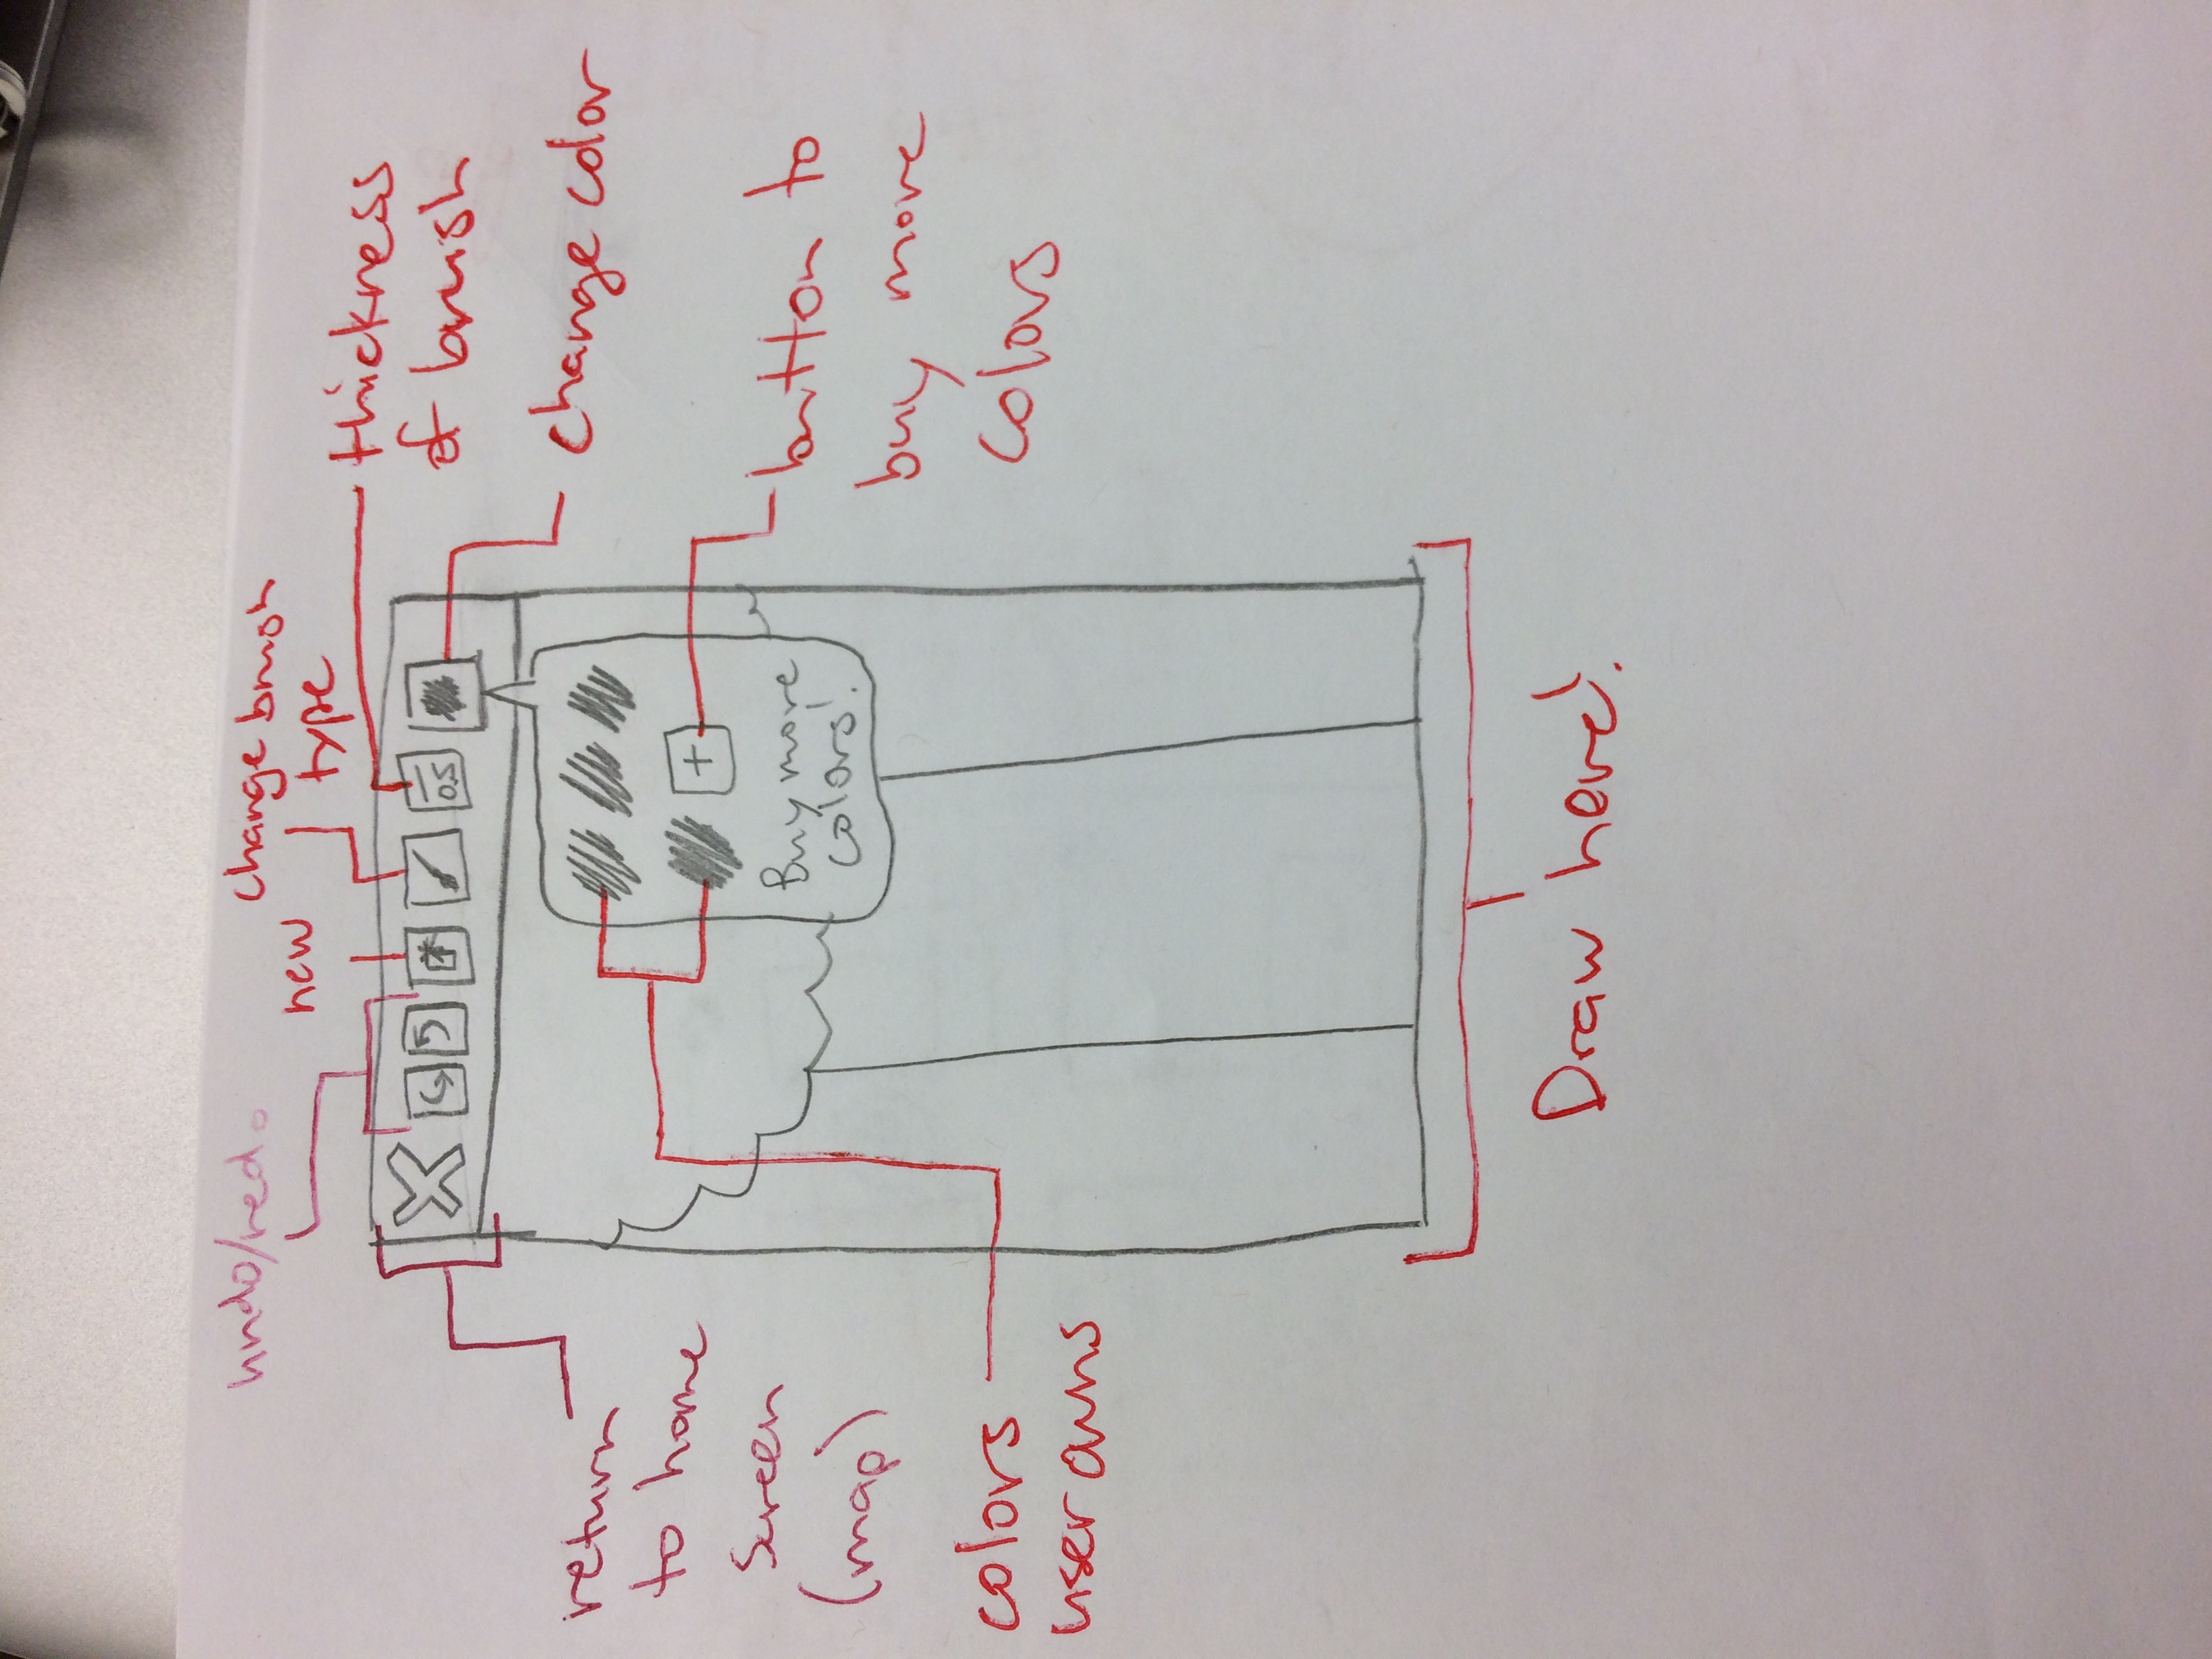 undo/redo
new
change brush
type
thickness
of brush
0.5
change color
return
to home
screen
(map)
Buy more
colors!
button to
buy more
colors
colors
user owns
Draw here!